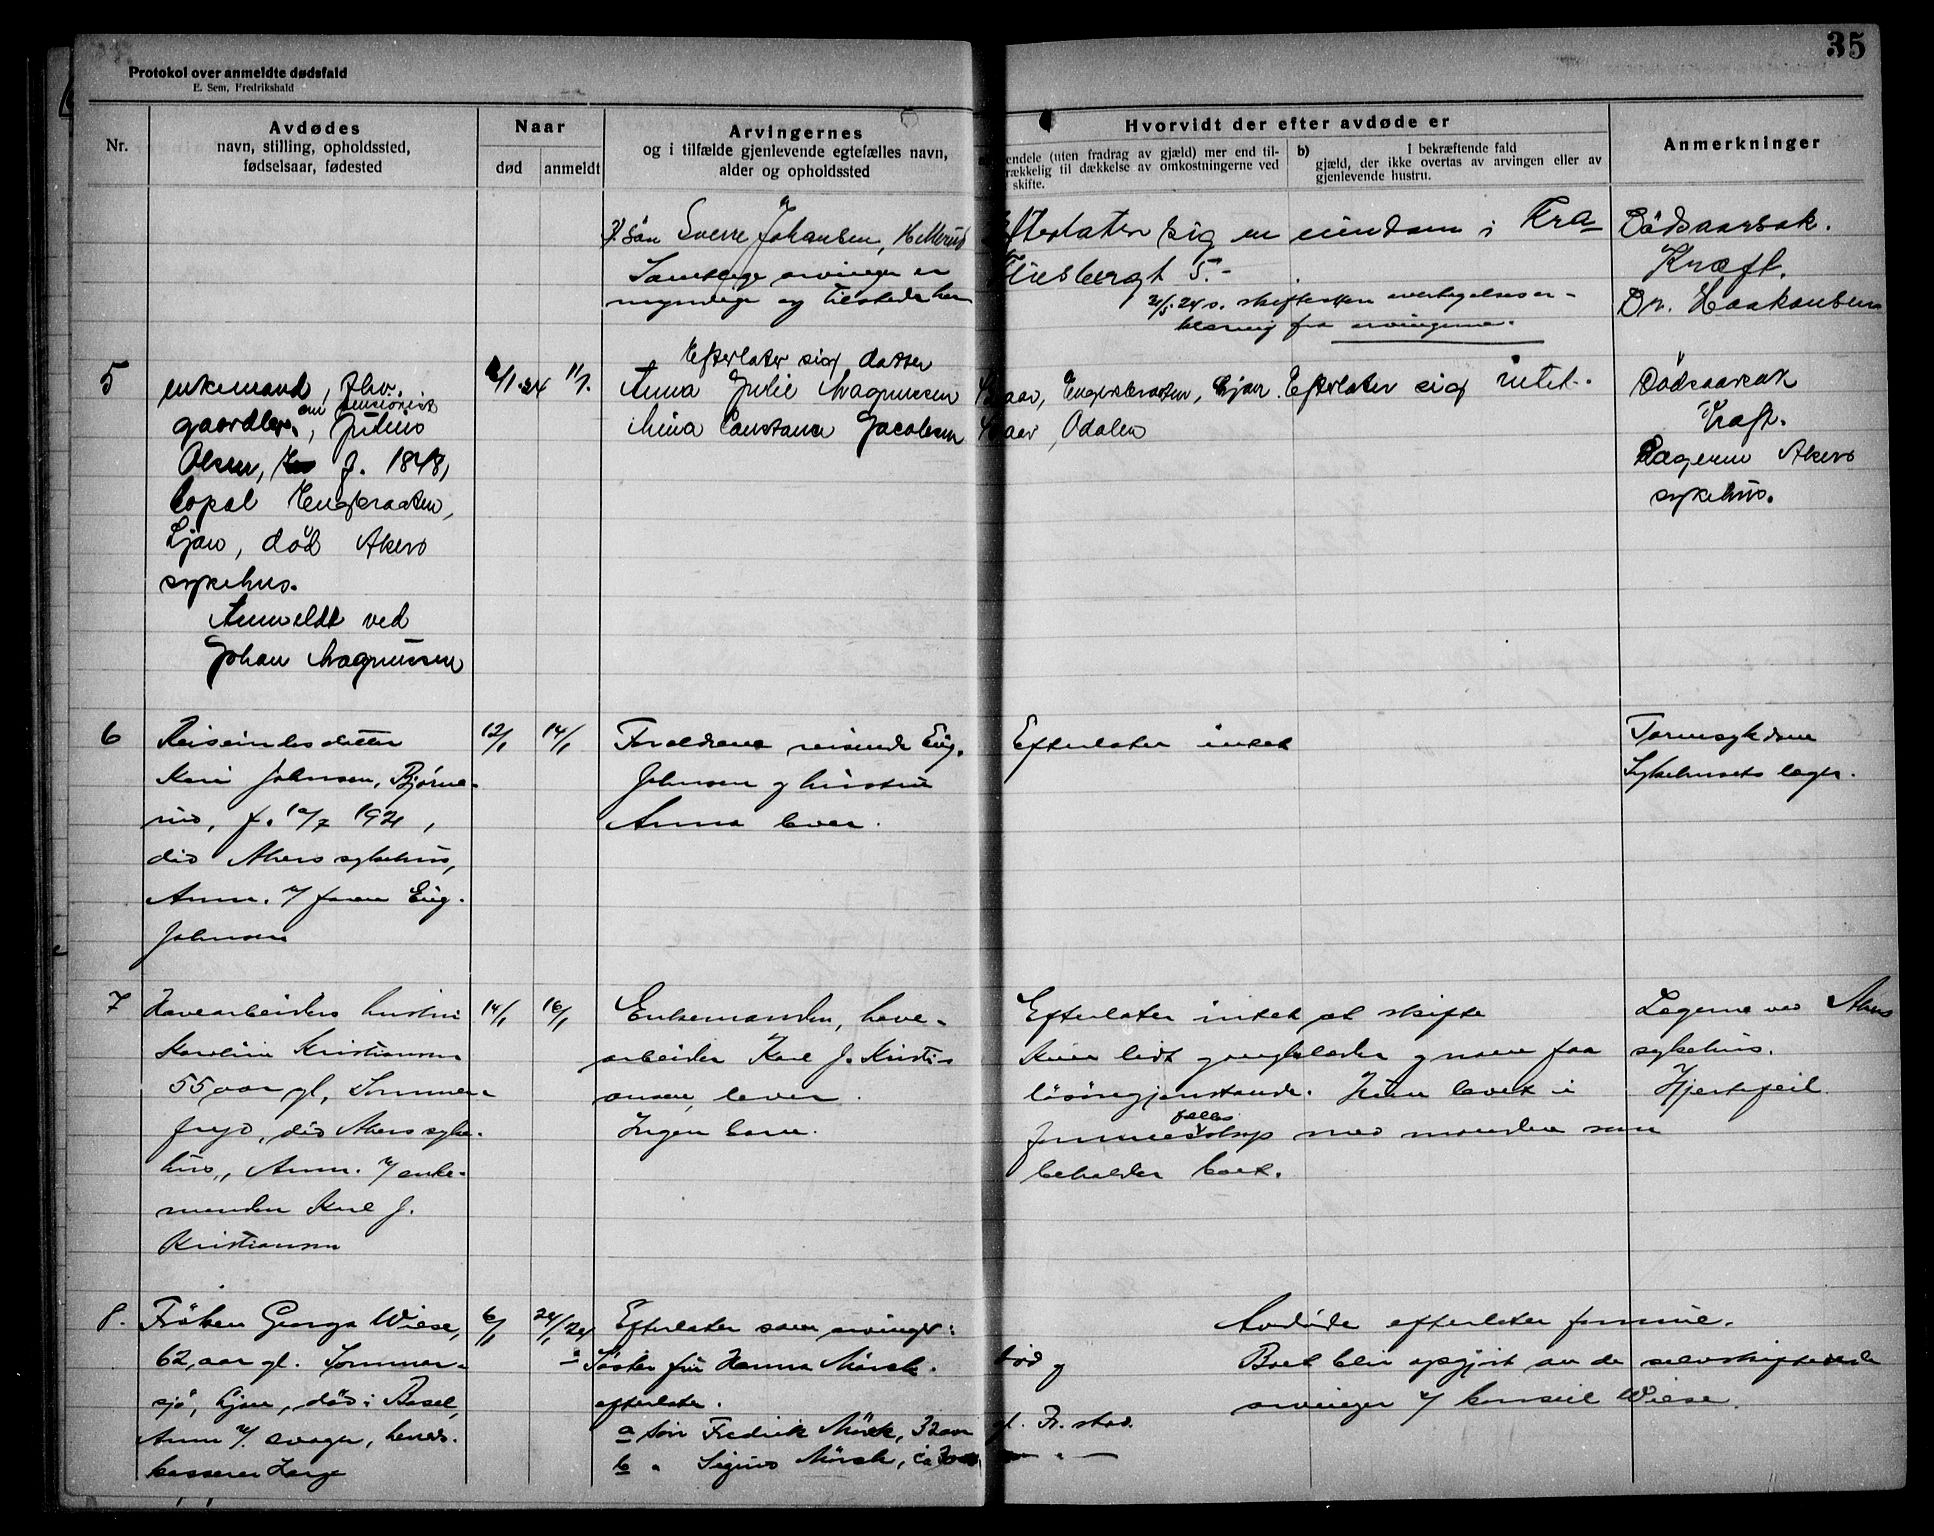 35
Protokol over anmeldte dødsfald
E. Sem, Fredrikshald
Nr.
Avdødes
navn, stilling, opholdssted,
fødselsaar, fødested
Naar
død
anmeldt
Arvingernes
og i tilfælde gjenlevende egtefælles navn,
alder og opholdssted
Hvorvidt der efter avdøde er
endele (uten fradrag av gjæld) mer end til-
rækkelig til dækkelse av omkostningerne ved
skifte.
b) I bekræftende fald
gjæld, der ikke overtas av arvingen eller av
gjenlevende hustru.
Anmerkninger
Søn Sverre Johansen, Hellerud
Samtlige arvinger er
myndige og tilstede her
Efterlater sig en eiendom i Kra
5.-
24 s. skifteskjøn overtagelseser-
klæring fra arvingerne.
Dödsaarsak.
Kræft.
Dr. Haakonsen
5
enkemand, fhv.
gaardbr. pensionist, Julius
Olsen, f. 1848,
bopæl Engbraaten,
Ljan, död Akers
sykehus.
Anmeldt ved
Johan Magnussen
/1.24
11/1.
Efterlater sig datter
Anna Julie Magnussen aar, Engebraaten, Ljan.
Mina Constance Jacobsen aar, Odalen
Efterlater sig intet.
Dödsaarsak
Kræft.
Lægerne Akers
sykehus.
6
Reisendes datter
Kari Johnsen, Bjørne-
f. 1921,
død Akers sykehus,
Anm. v/ faren Eug.
Johnsen
12/1
14/1
Forældrene reisende Eug.
Johnsen og hustru
Anna lever.
Efterlater intet
Tarmsykdom
Sykehusets læger.
7
Havearbeiders hustru
Karoline Kristiansen
55 aar gl, Sommer-
fryd, død Akers syke-
hus,, Anm. v/ enke-
manden Karl J.
Kristiansen
14/1
16/1
Enkemanden, have-
arbeider Karl J. Kristi-
ansen, lever.
Ingen barn.
Efterlater intet at skifte
Kun lidt gangklæder og noen faa
løsøregjenstande. Hun levet i
formuesfællesskap med manden som
beholder boet.
Lægerne ved Akers
sykehus.
Hjertefeil.
8.
Frøken Georga Wiese,
62, aar gl. Sommer-
sjø, Ljan, død i Basel,
Anm v/. svoger, herreds-
kasserer Lange
6/1
24/1 24
Efterlater som arvinger:
Søster fru Hanna Mörck. død og
efterlater.
a søn Fredrik Mörck, 32 aar gl. Fr.stad.
b " Sigurd Mörck,
Avdøde efterlater formue.
Boet blir opgjort av de selvskiftende
arvinger v/ konsul Wiese.